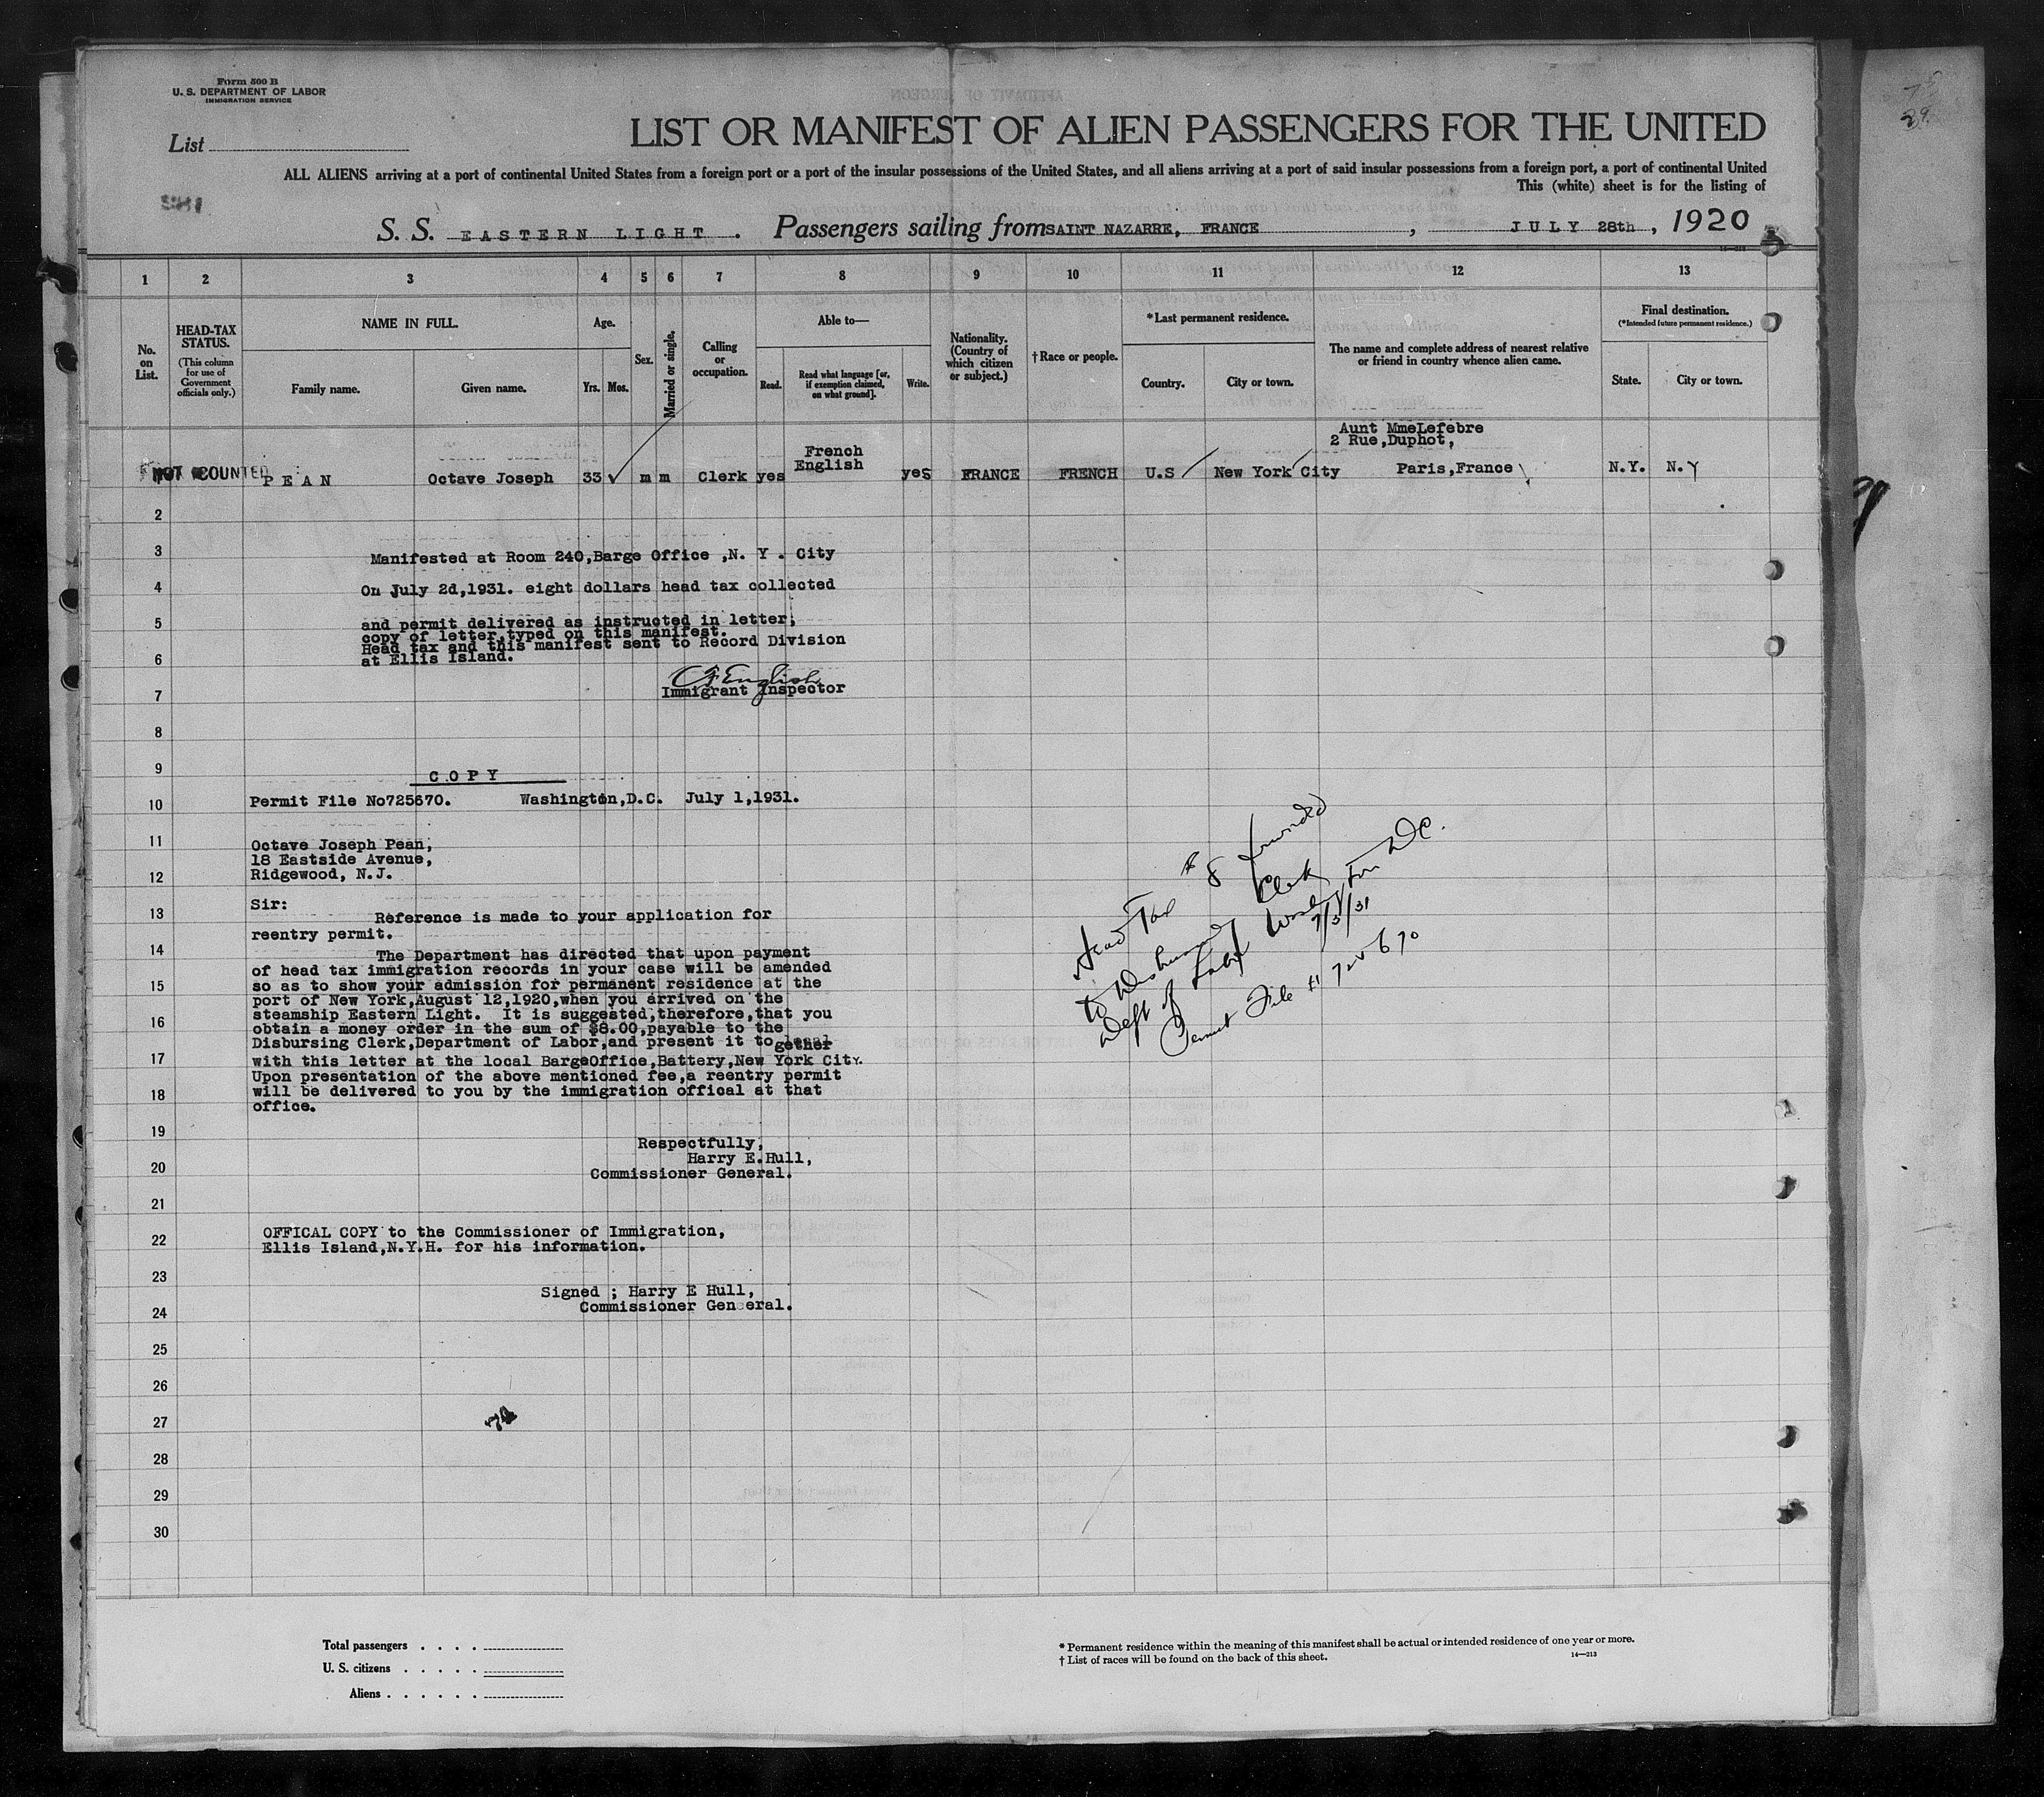 Form 500 B
U. S. DEPARTMENT OF LABOR
IMMIGRATION SERVICE
List
LIST OR MANIFEST OF ALIEN PASSENGERS FOR THE UNITED
ALL ALIENS arriving at a port of continental United States from a foreign port or a port of the insular possessions of the United States, and all aliens arriving at a port of said insular possessions from a foreign port, a port of continental United
This (white) sheet is for the listing of
S. S. EASTERN LIGHT . Passengers sailing from SAINT NAZARRE, FRANCE , JULY 28th , 1920
1 2 3 4 5 6 7 8 9 10 11 12 13
No. on List.
HEAD-TAX STATUS.
(This column for use of Government officials only.)
NAME IN FULL.
Family name.
Given name.
Age.
Yrs. Mos.
Sex.
Married or single.
Calling or occupation.
Able to—
Read.
Read what language [or, if exemption claimed, on what ground].
Write.
Nationality. (Country of which citizen or subject.)
† Race or people.
*Last permanent residence.
Country.
City or town.
The name and complete address of nearest relative or friend in country whence alien came.
Final destination.
(*Intended future permanent residence.)
State.
City or town.
Aunt MmeLefebre
2 Rue,Duphot,
NOT COUNTED PEAN Octave Joseph 33 m m Clerk yes French English yes FRANCE FRENCH U.S New York City Paris,France N.Y. N.Y
2
3
Manifested at Room 240,Barge Office ,N. Y . City
4
On July 2d,1931. eight dollars head tax collected
5
and permit delivered as instructed in letter;
copy of letter,typed on this manifest.
Head tax and this manifest sent to Record Division
6
at Ellis Island.
CF English
7
Immigrant Inspector
8
9
COPY
10
Permit File No725670. Washington,D.C. July 1,1931.
11
Octave Joseph Pean,
18 Eastside Avenue,
12
Ridgewood, N.J.
Sir:
13
Reference is made to your application for
reentry permit.
14
The Department has directed that upon payment
of head tax immigration records in your case will be amended
15
so as to show your admission for permanent residence at the
port of New York,August 12,1920,when you arrived on the
steamship Eastern Light. It is suggested,therefore,that you
16
obtain a money order in the sum of $8.00,payable to the
Disbursing Clerk,Department of Labor,and present it together
17
with this letter at the local BargeOffice,Battery,New York City.
Upon presentation of the above mentioned fee,a reentry permit
18
will be delivered to you by the immigration offical at that
office.
19
Respectfully,
Harry E.Hull,
20
Commissioner General.
21
22
OFFICAL COPY to the Commissioner of Immigration,
Ellis Island,N.Y.H. for his information.
23
Signed ; Harry E Hull,
24
Commissioner General.
25
26
27
28
29
30
Head Tax $8 forwarded
to Disbursing Clerk
Dept of Labor Washington DC.
7/3/31
Permit File # 725670
Total passengers . . . .
U. S. citizens . . . . .
Aliens . . . . . .
* Permanent residence within the meaning of this manifest shall be actual or intended residence of one year or more.
† List of races will be found on the back of this sheet.
14—213